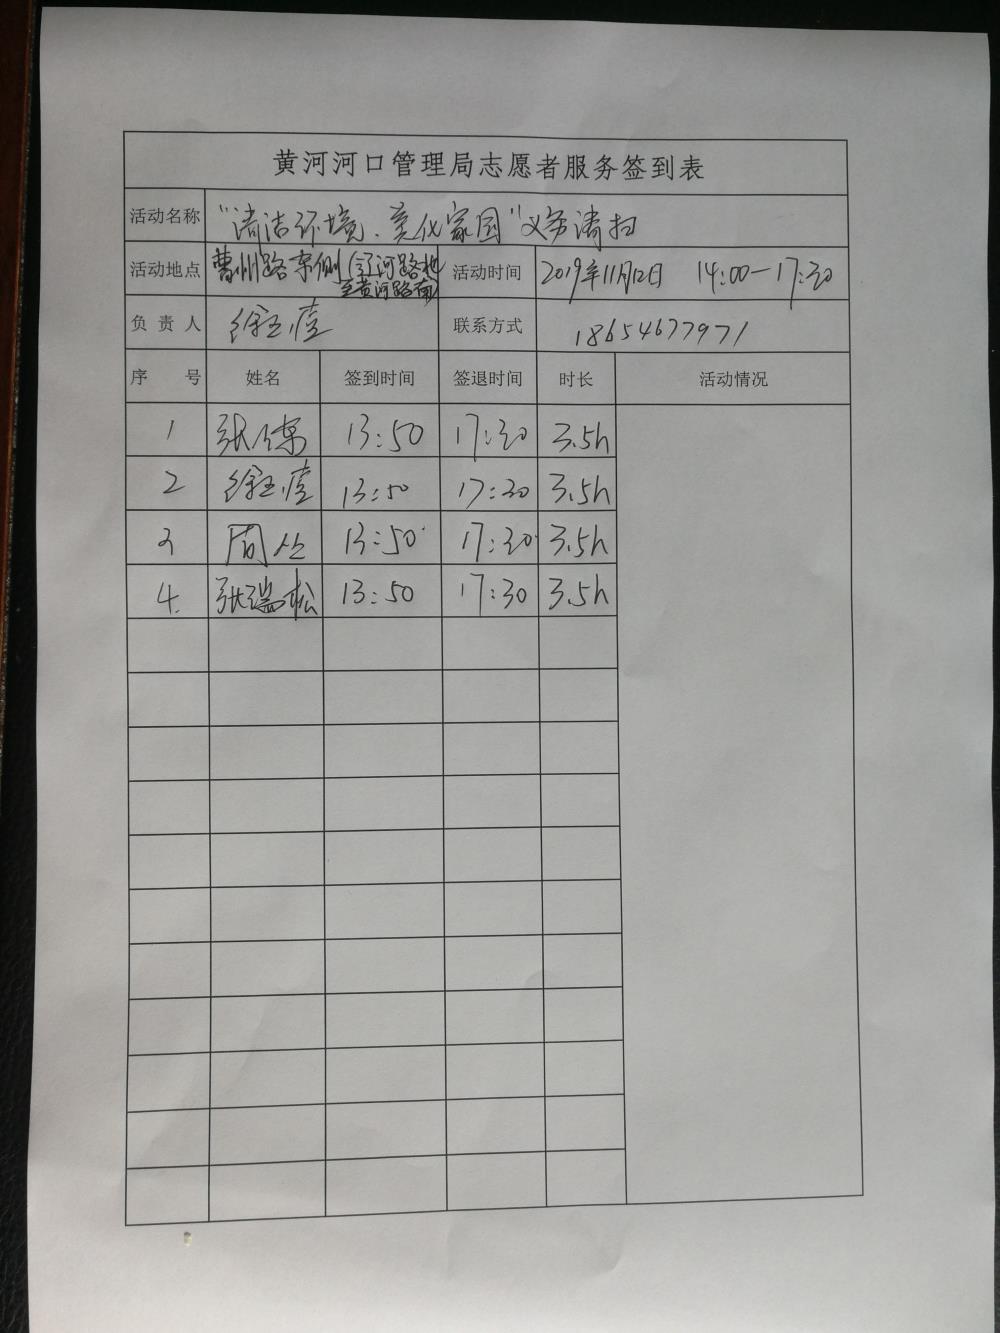 黄河河口管理局志愿者服务签到表
活动名称 "清洁环境、美化家园"义务清扫
活动地点 曹州路东侧(辽河路北
至黄河路南) 活动时间 2019年11月12日 14:00-17:30
负责人 徐 联系方式 18654677971
序号 姓名 签到时间 签退时间 时长 活动情况
1 张 13:50 17:30 3.5h
2 徐 13:50 17:30 3.5h
3 周丛 13:50 17:30 3.5h
4. 张瑞松 13:50 17:30 3.5h